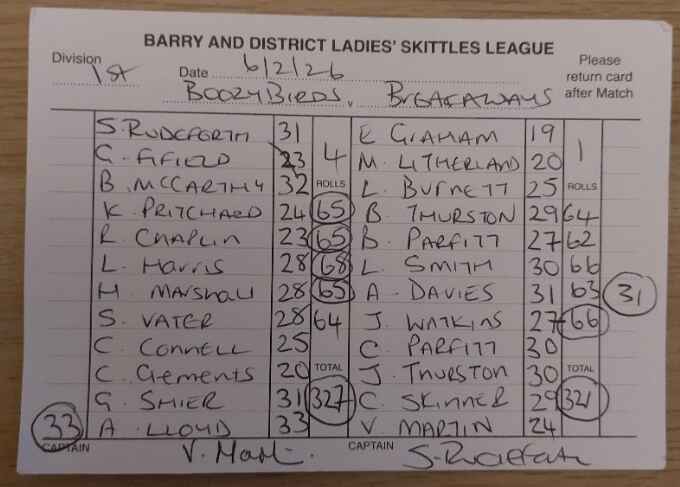 BARRY AND DISTRICT LADIES' SKITTLES LEAGUE
Division 1st Date 6/2/26 Please return card after Match
BOOZY BIRDS v. BREAKAWAYS
S. RUDEFORTH 31 4 E GRAHAM 19 1
G. FIFIELD 23 M. LITHERLAND 20
B. MCCARTHY 32 ROLLS L. BURNETT 25 ROLLS
K. PRITCHARD 24 65 B. THURSTON 29 64
R. CHAPLIN 23 65 B. PARFITT 27 62
L. HARRIS 28 68 L. SMITH 30 66
H. MARSHALL 28 65 A. DAVIES 31 63 31
S. VATER 28 64 J. WATKINS 27 66
C. CONNELL 25 C. PARFITT 30
C. Clements 20 TOTAL J. THURSTON 30 TOTAL
G. SHIER 31 327 C. SKINNER 29 321
33 A. LLOYD 33 V MARTIN 24
CAPTAIN V. CAPTAIN S. Rudeforth